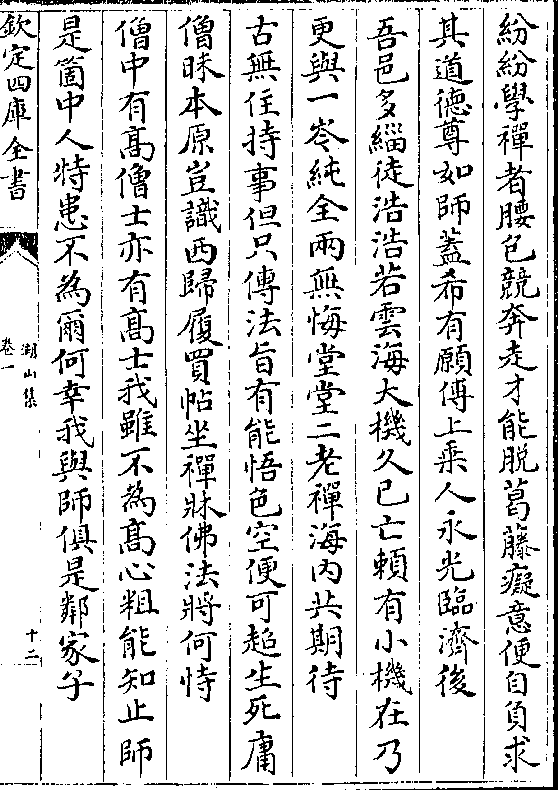 紛紛學禪者腰包競奔走才能脱葛藤癡意便自負求
其道德尊如師蓋希有願傳上乗人永光臨濟後
吾邑多緇徒浩浩若雲海大機久已亡頼有小機在乃
更與一岑純全兩無悔堂堂二老禪海内共期待
古無住持事但只傳法旨有能悟色空便可超生死庸
僧昧本原豈識西歸履買帖坐禪牀佛法將何恃
僧中有髙僧士亦有髙士我雖不為髙心粗能知止師
是箇中人特患不為爾何幸我與師俱是鄰家子
欽定四庫全書
湖山集
卷一
十二